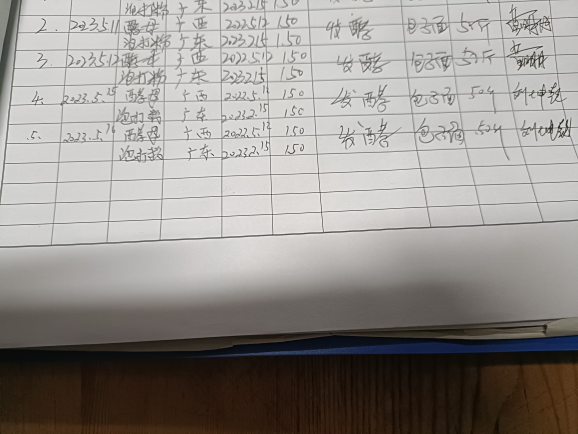 泡打粉 广东 2023215 150
2. 2023.5.11 酵母 广西 2022512 150 发酵 包子面 50斤
泡打粉 广东 2023215 1.50
3. 2023.5.12 酵母 广西 2022.5.12 150 发酵 包子面 50斤
泡打粉 广东 2023215 150
4. 2023.5.15 酵母 广西 2022.5.12 150 发酵 包子面 50斤
泡打粉 广东 2023.2.15 150
5. 2023.5.16 酵母 广西 2022.5.12 150 发酵 包子面 50斤
泡打粉 广东 2023.2.15 150